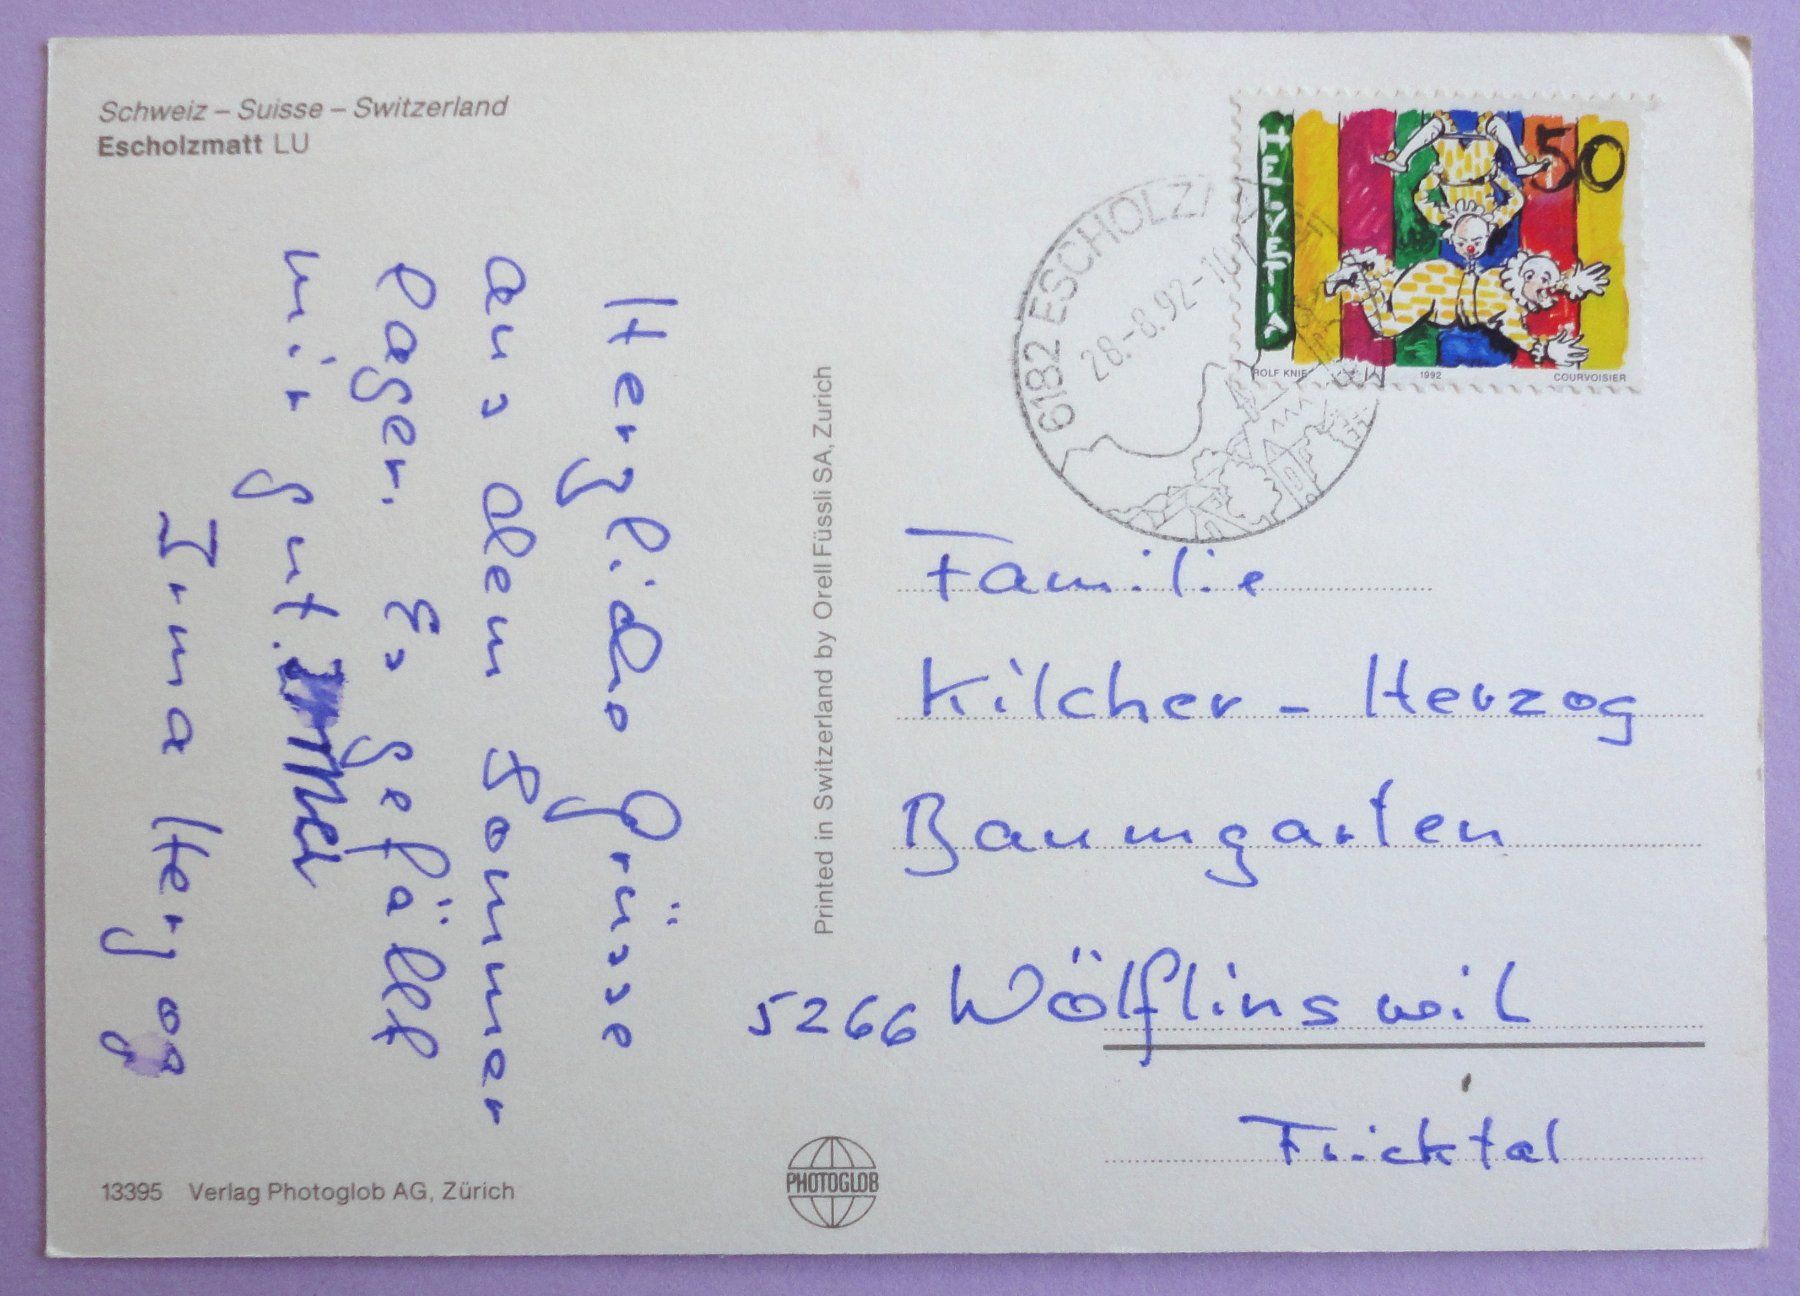 Schweiz – Suisse – Switzerland
Escholzmatt LU
Herzliche Grüsse
aus dem Sommer
lager. Es gefällt
mir gut.
Irma Herzog
13395 Verlag Photoglob AG, Zürich
Printed in Switzerland by Orell Füssli SA, Zurich
PHOTOGLOB
6182 ESCHOLZ
28.-8.92-
HELVETIA
50
ROLF KNIE 1992 COURVOISIER
Familie
Kilcher - Herzog
Baumgarten
5266 Wölflinswil
Fricktal